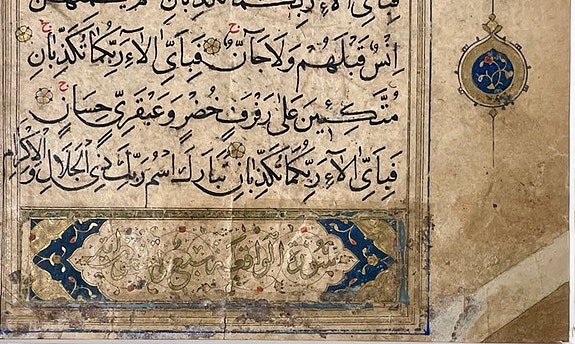 فَبِأَيِّ آلَاءِ رَبِّكُمَا تُكَذِّبَانِ لَمْ يَطْمِثْهُنَّ
إِنْسٌ قَبْلَهُمْ وَلَا جَانٌّ فَبِأَيِّ آلَاءِ رَبِّكُمَا تُكَذِّبَانِ
مُتَّكِئِينَ عَلَى رَفْرَفٍ خُضْرٍ وَعَبْقَرِيٍّ حِسَانٍ
فَبِأَيِّ آلَاءِ رَبِّكُمَا تُكَذِّبَانِ تَبَارَكَ اسْمُ رَبِّكَ ذِي الْجَلَالِ وَالْإِكْرَامِ
سورة الواقعة تسع